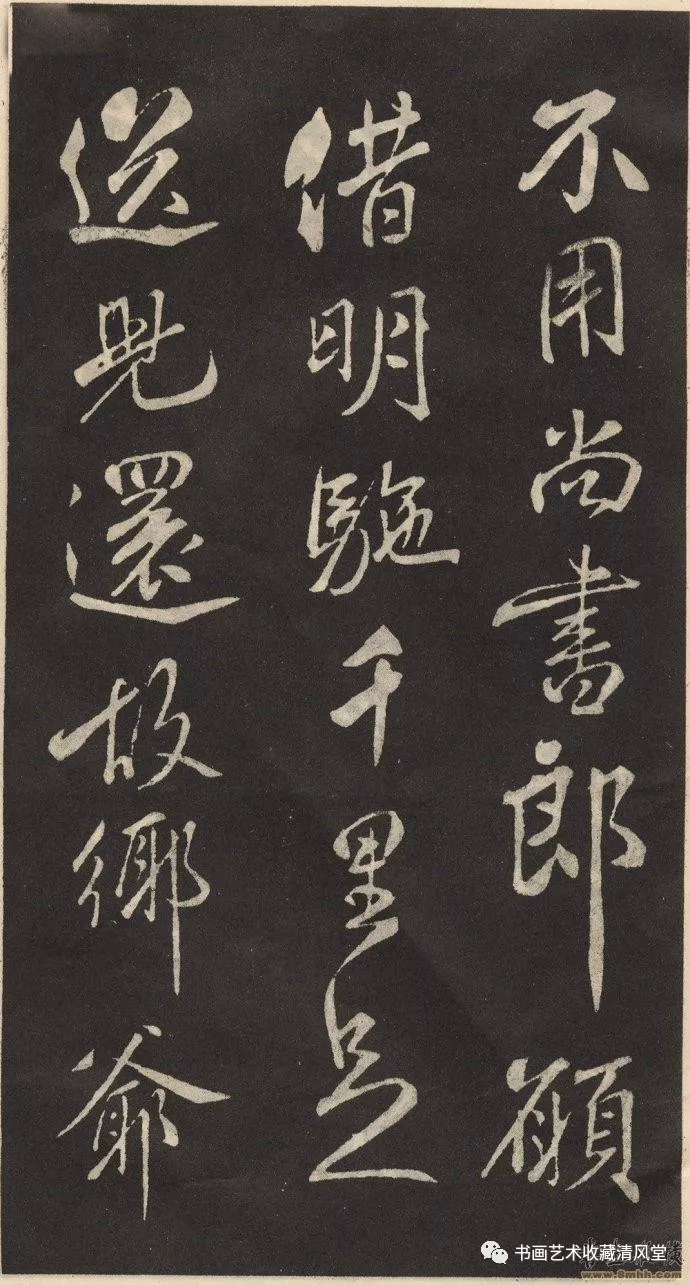 不用尚書郎願
借明駞千里足
送兒還故鄉爺
书画艺术收藏清风堂
www.9mhh.com